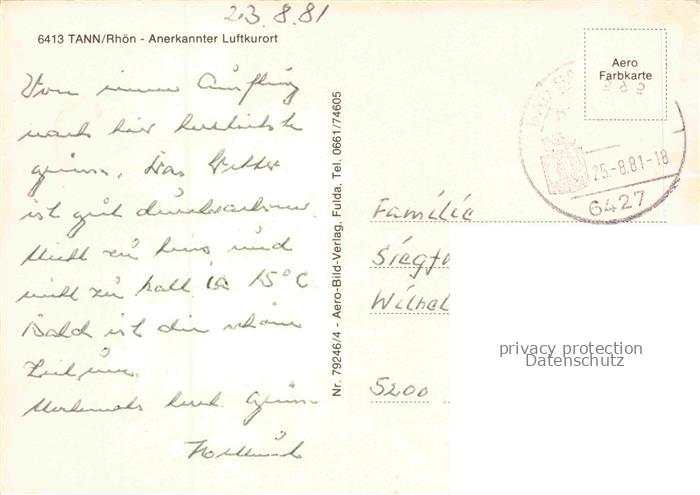 23.8.81
6413 TANN/Rhön - Anerkannter Luftkurort
Von einem Ausflug
nach hier herzlichste
Grüsse. Das Wetter
ist gut durchwachsen.
Nicht zu heiss und
nicht zu kalt ca 15°C
Bald ist die schöne
Zeit um.
Nochmals herzl. Grüsse
Nr. 79246/4 - Aero-Bild-Verlag, Fulda, Tel. 0661/74605
Aero
Farbkarte
25.-8.81-18
6427
Familie
Siegf
Wilhel
5200
privacy protection
Datenschutz